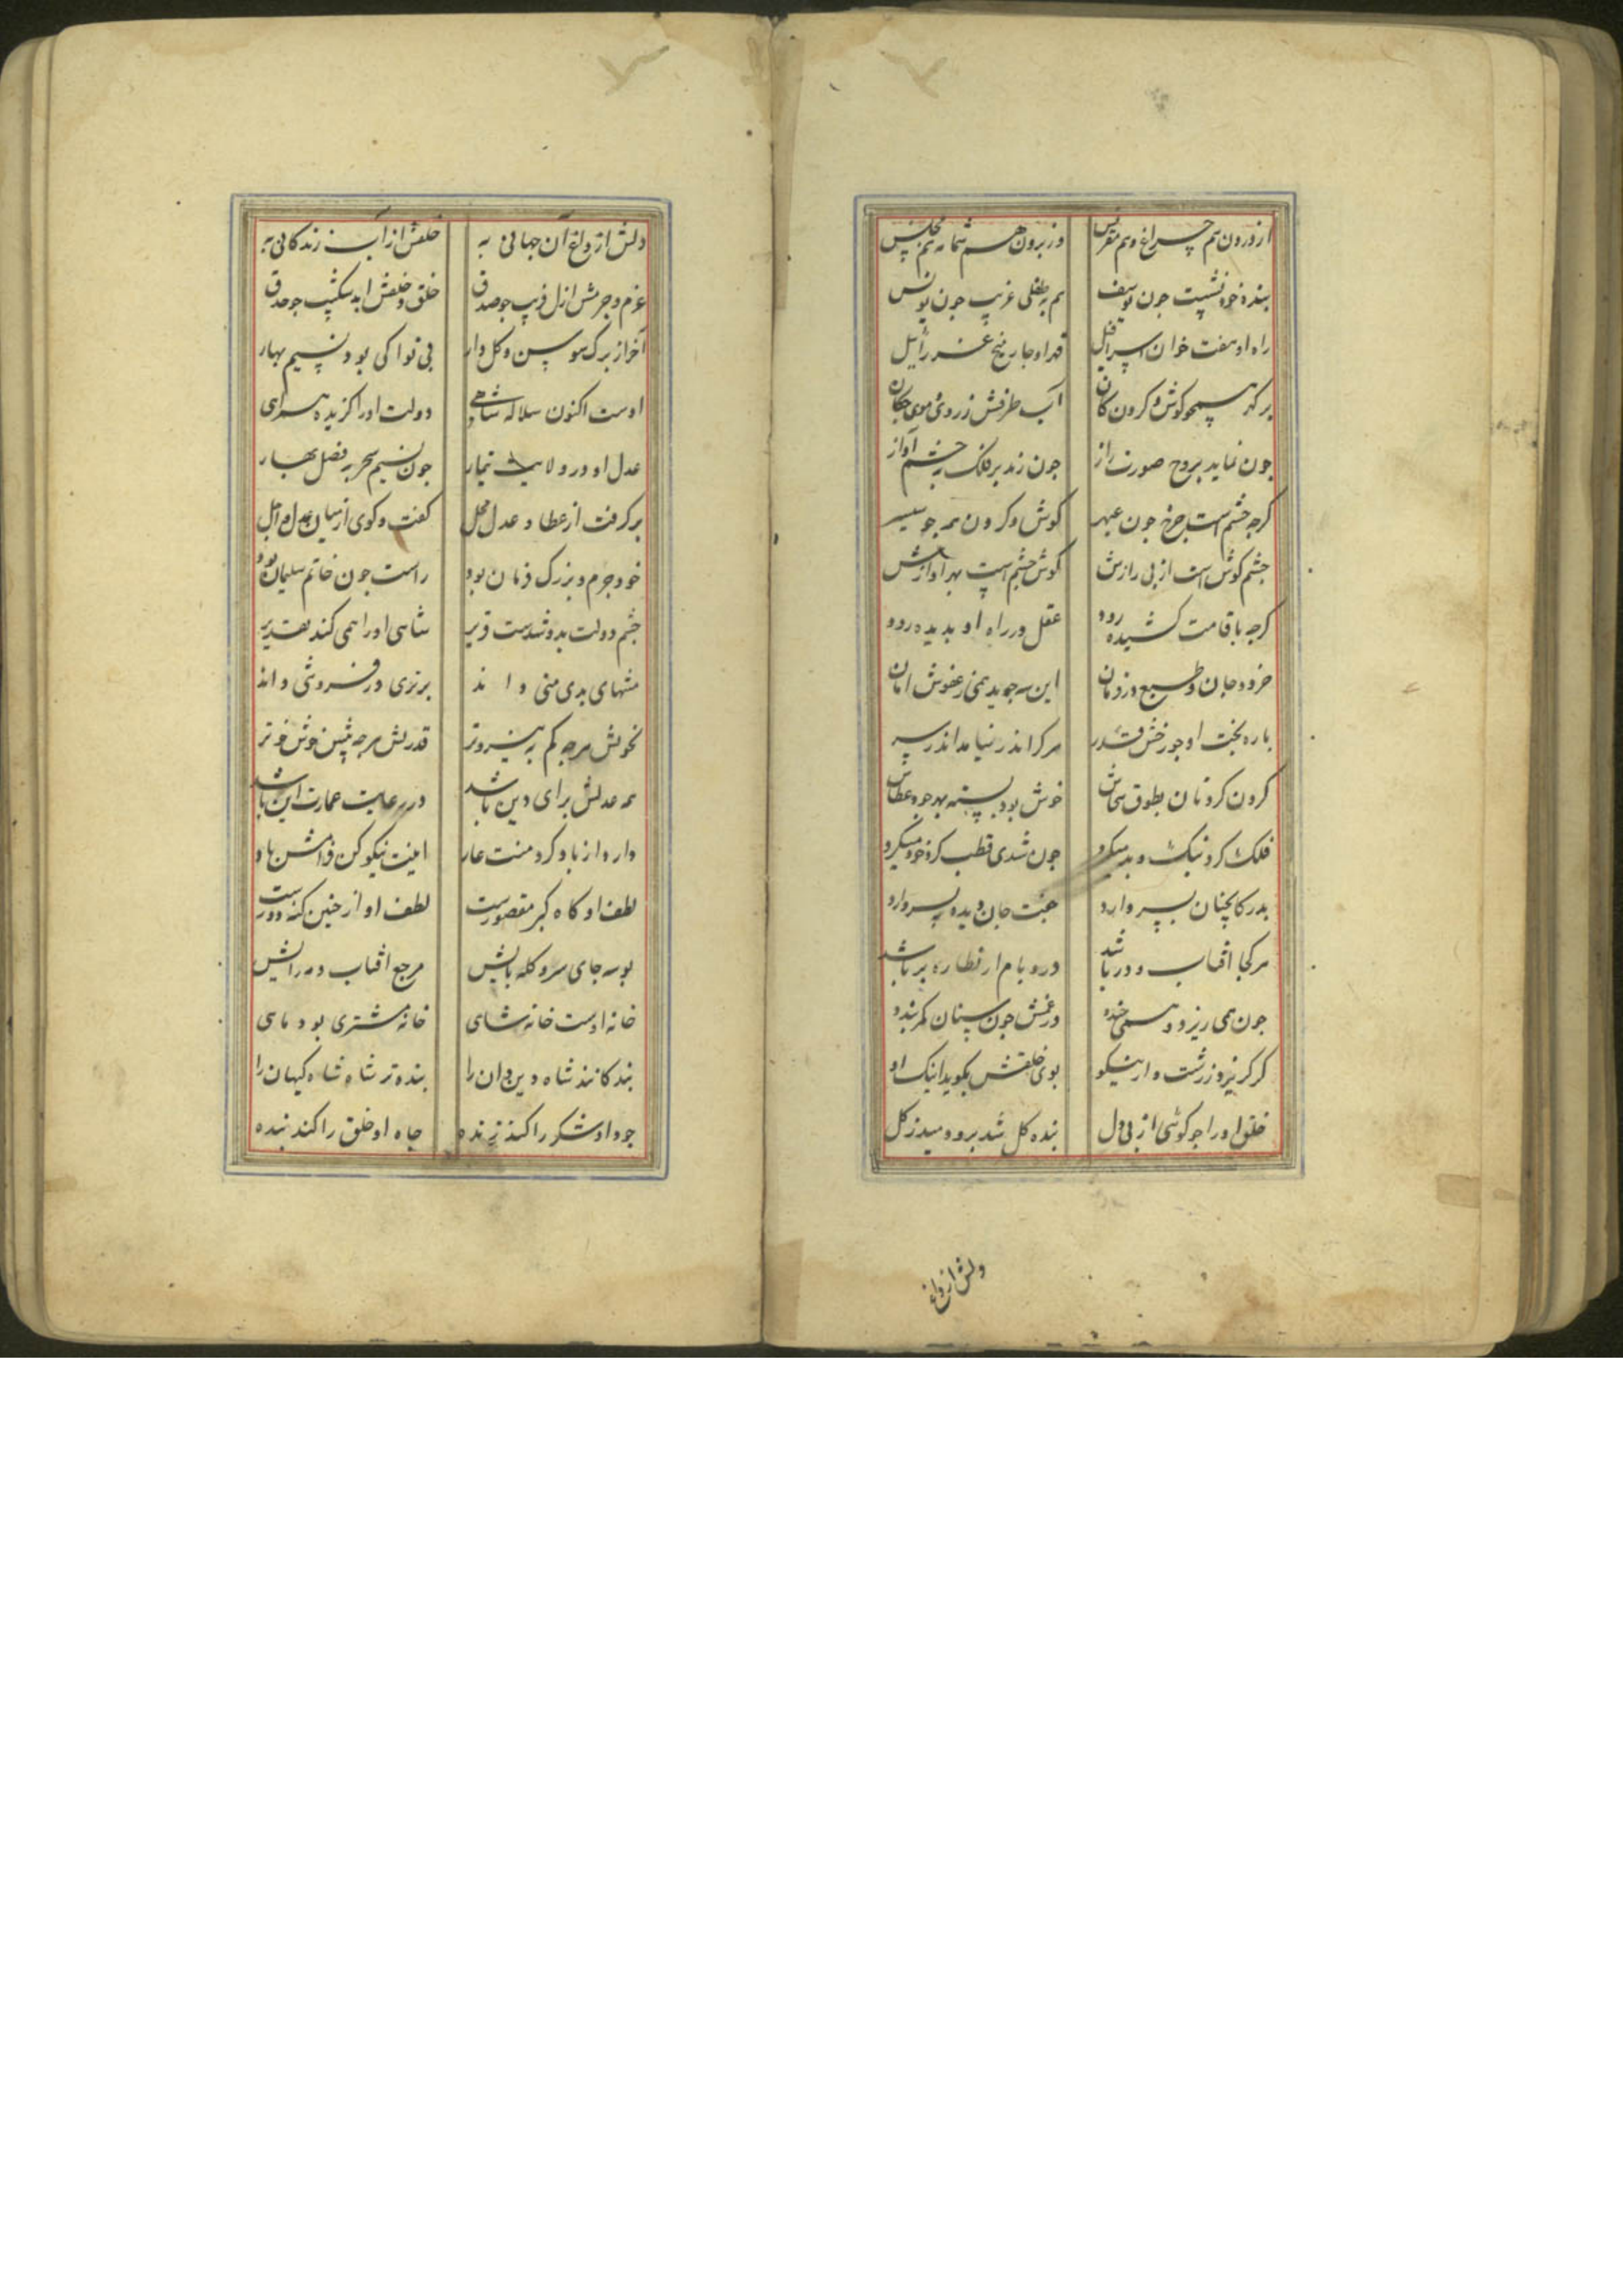 از درون هم چراغ و هم مونس وز برون هم شمامه هم مجلس
بنده خود نشست چون یوسف هم به طفلی غریب چون یونس
راه او هفت خوان اسرافیل قد او چار میخ عزرائیل
بر که همچو کوش و کردون کان آب طرفش ز روی موی چکان
چون نماید بروح صورت راز چون زند بر فلک به خشم آواز
کرچه چشم است چرخ چون عبهر کوش و کردون همه چو سیسنبر
چشم کوش است از پی رازش کوش چشم است بهر آوازش
کرچه با قامت کشیده رود عقل در راه او بدیده رود
خرد و جان و طبع در دو زمان این سه جوید همی ز عفوش امان
باره بخت او چو رخش قدر مرکرا اندر نیامد اندر سر
کردن کردنان بطوق سخاش خوش بود بسته بهر جود عطاش
فلک ار کرد نیک و بد میکرد چون شدی قطب کرد خود میکرد
بدر کانچنان پسر دارد جنت جان و دیده بر دارد
هر کجا آفتاب و در باشد در و بام از نظاره پر باشد
چون همی ریزد و همی خندد درغمش چون سنان کمر بندد
کر کریزد ز زشت و از نیکو بوی خلقش بکوید اینک او
خلق او را چو کوشی از پی دل بنده کل شد برو دمید ز کل
دلش از داغ آن جهانی به خلقش از آب زندکانی به
عزم و جرمش ازل فریب چو صدق خلق و خلقش ابد شکیب چو حدق
آخر از برک سوسن و کل وار بی نوا کی بود نسیم بهار
اوست اکنون سلاله شاهی دولت او را کزیده همراهی
عدل او در ولایت تیمار چون نسیم سحر به فصل بهار
برکرفت از عطا و عدل محل کفت و کوی از میان عدل و امل
خود چرم و بزرک فرمان بود راست چون خاتم سلیمان بود
چشم دولت بدو شدست قریر شاهی او را همی کند تقدیر
منتهای بدی منی داند برتری در فروتنی داند
نحوتش هرچه کم به نیروتر قدرتش هرچه بیش خوش خوتر
همه عدلش برای دین باشد در رعایت عمارت این باشد
دارد از باد کرد منت عار امنیت نیکو کن فرامش باد
لطف او کاه کبر مقصورست لطف او از چنین کنه دورست
بوسه جای سر و کله پایش مرجع آفتاب و مه رایش
خانه اوست خانه شاهی خانه مشتری بود ماهی
بندکانند شاه دین دان را بنده تر شاه شاه کیهان را
جود او شکر را کند زنده جاه او خلق را کند بنده
دلش از داغ